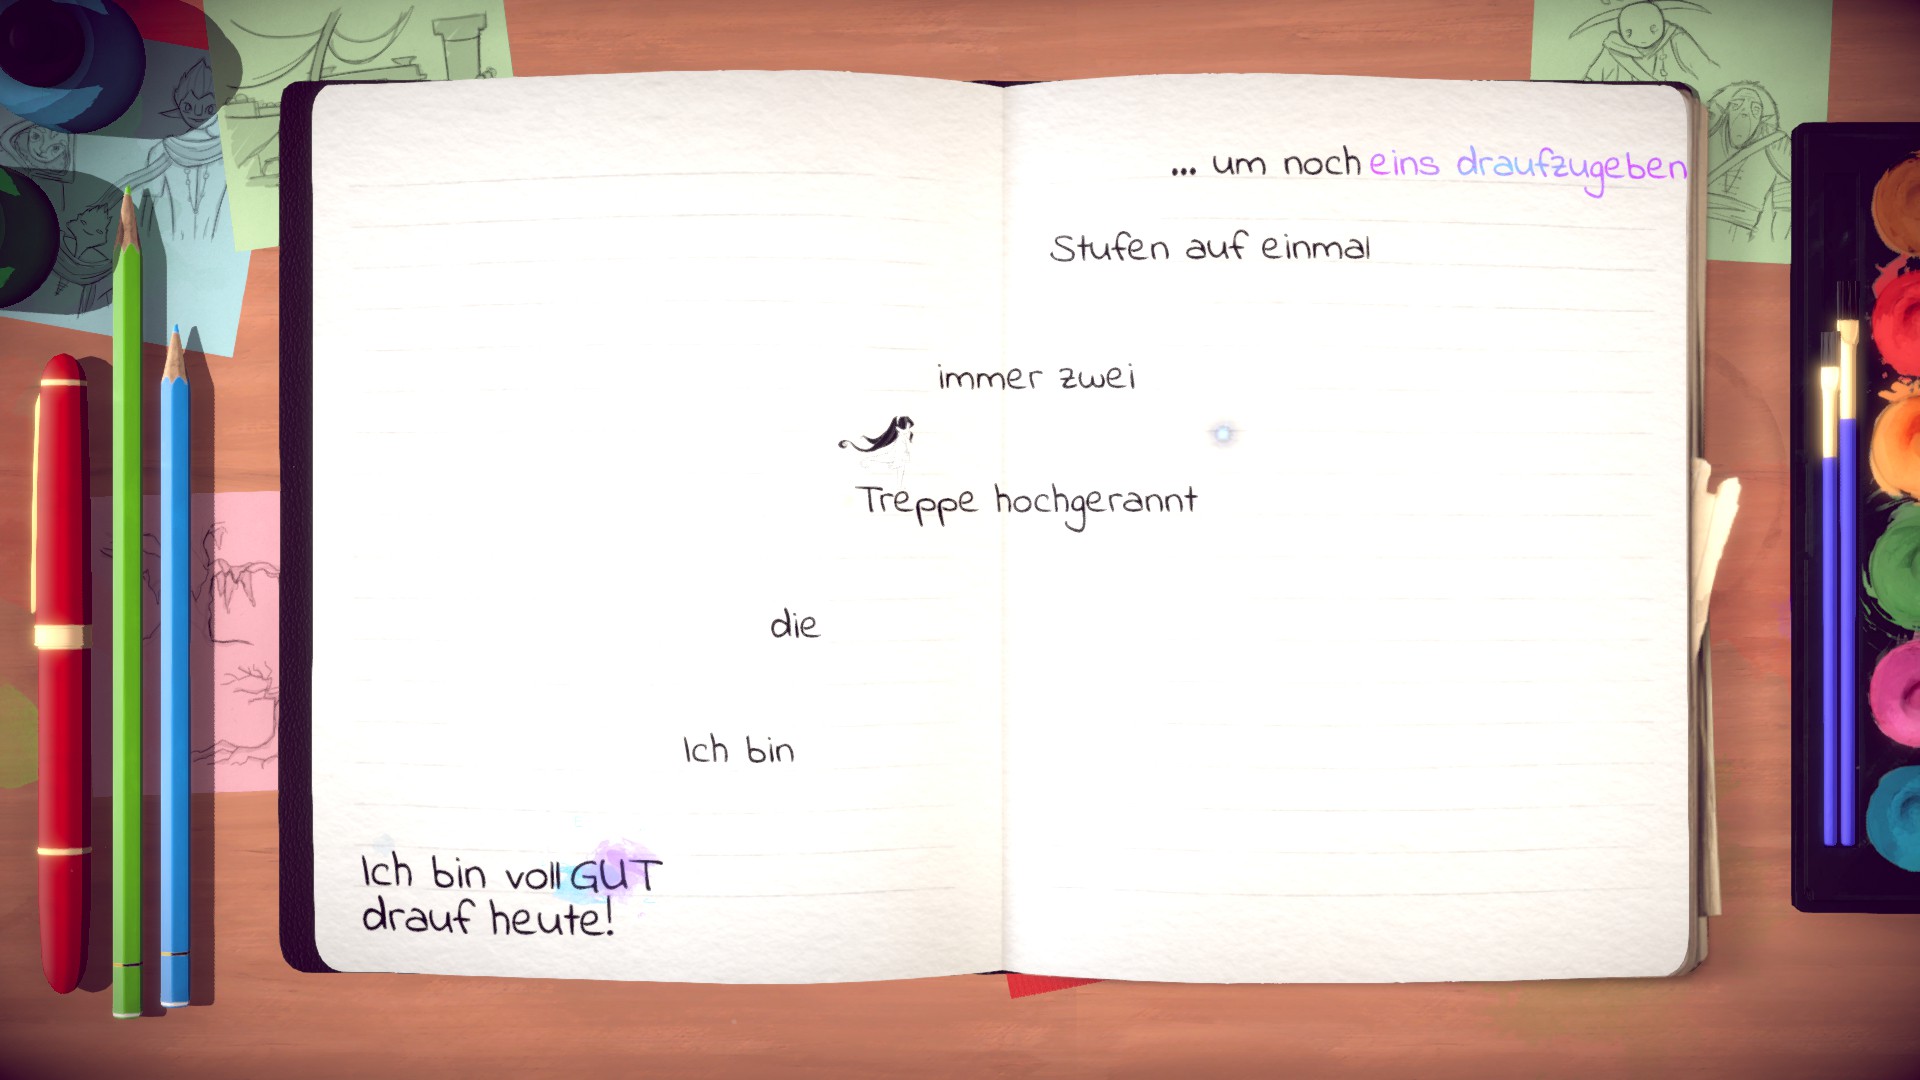 Ich bin voll GUT
drauf heute!
Ich bin
die
Treppe hochgerannt
immer zwei
Stufen auf einmal
... um noch eins draufzugeben